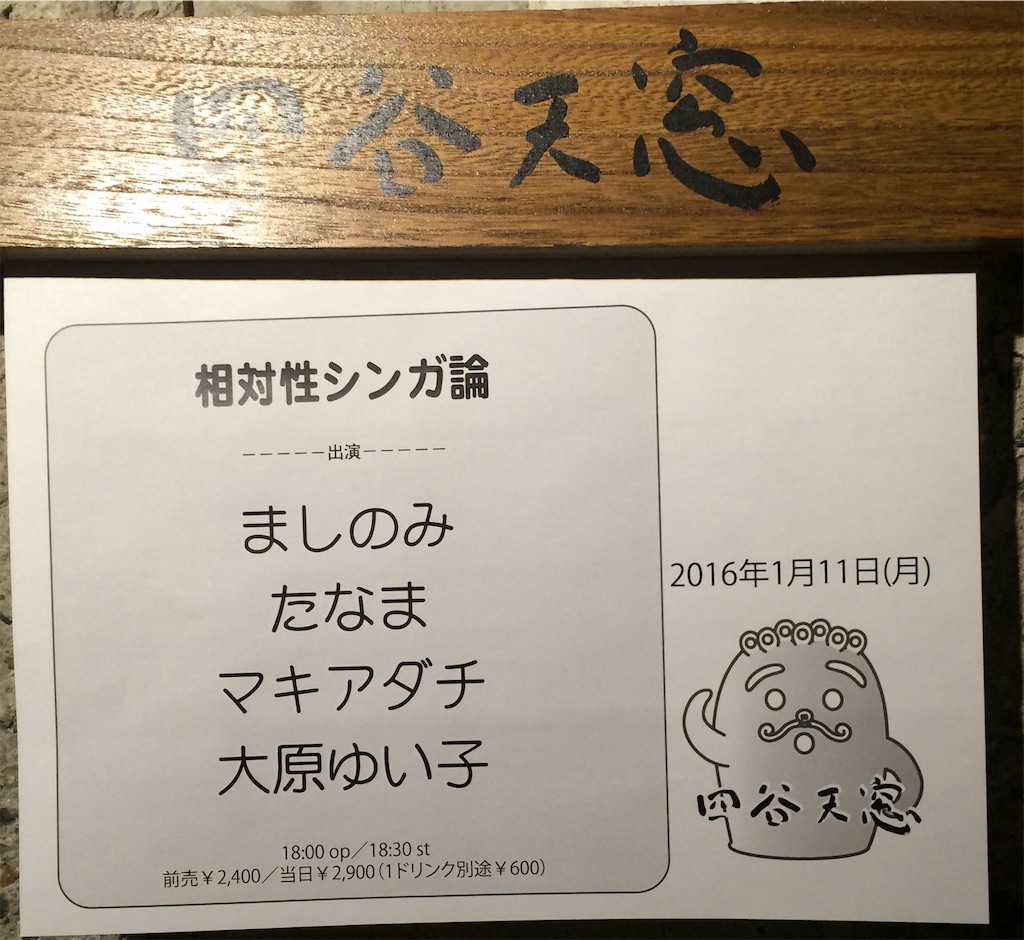 四谷天窓
相対性シンガ論
－－－－－出演－－－－－
ましのみ
たなま
マキアダチ
大原ゆい子
18:00 op／18:30 st
前売￥2,400／当日￥2,900(1ドリンク別途￥600)
2016年1月11日(月)
四谷天窓